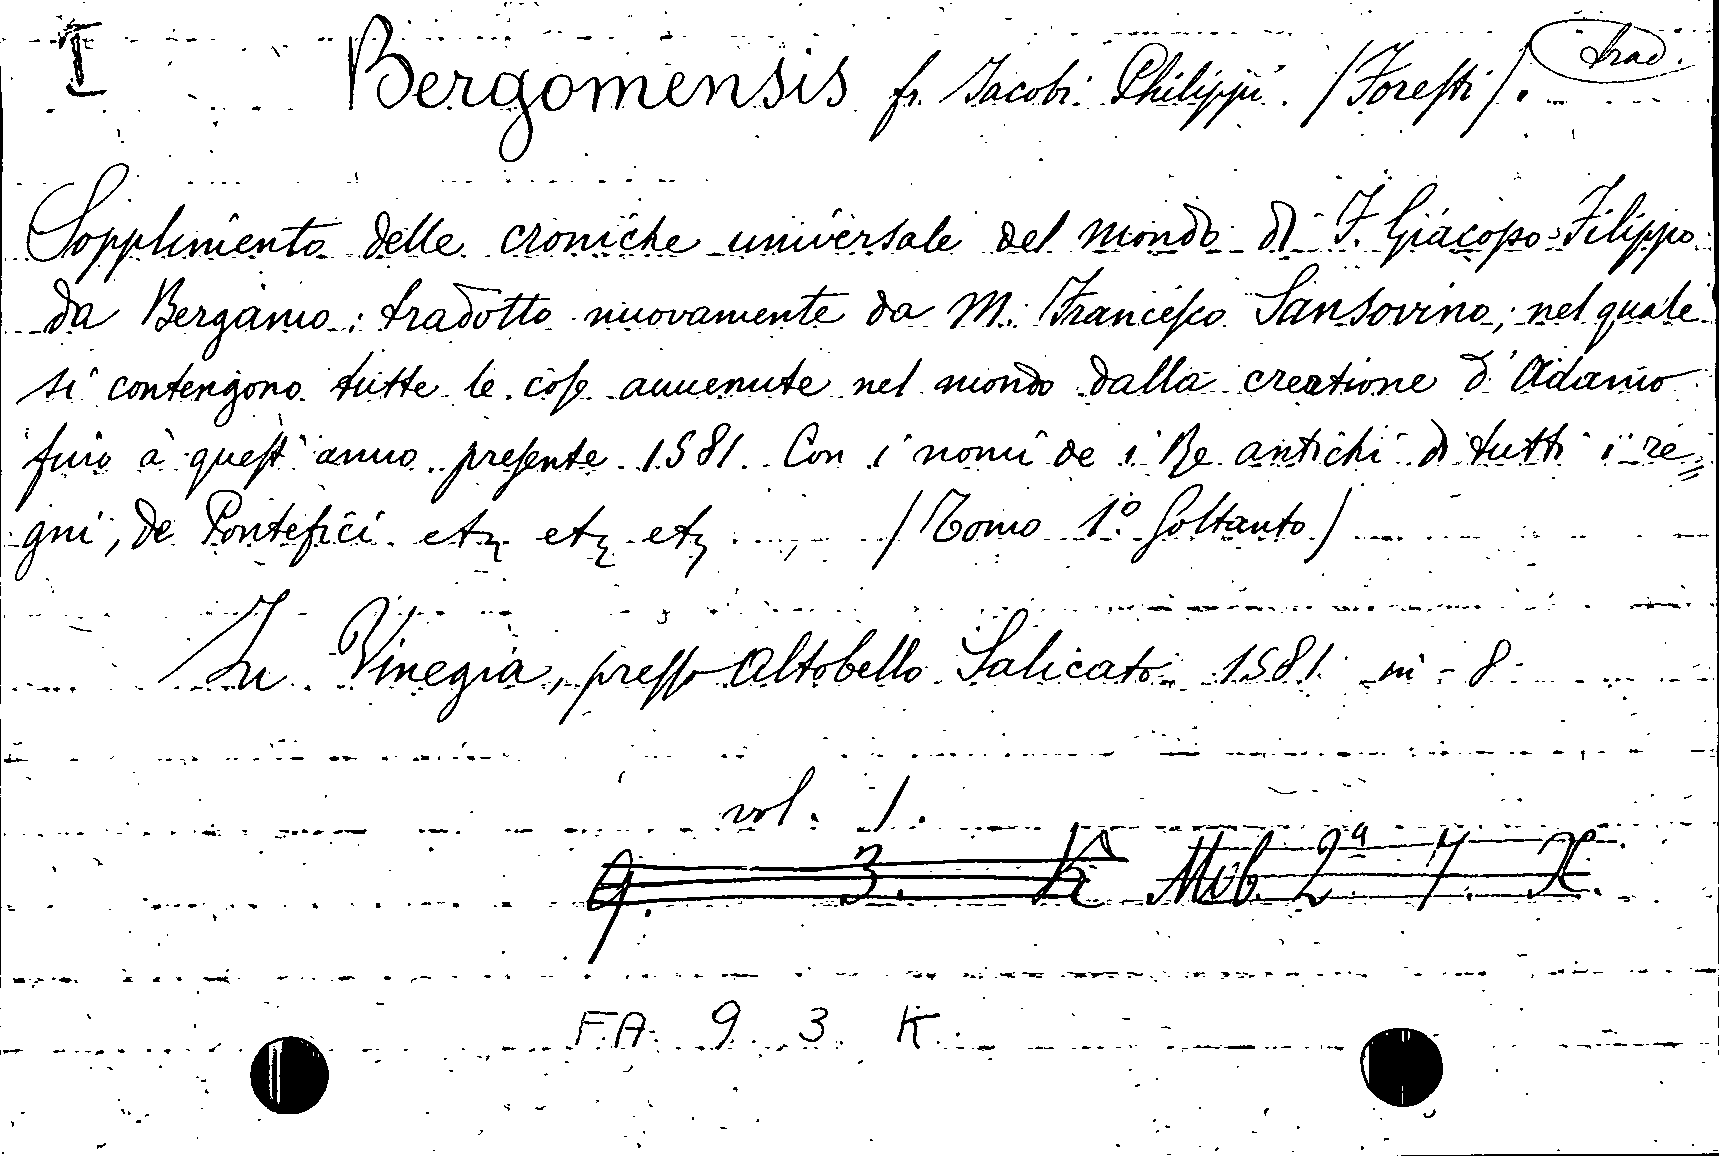 I Bergomensis fr. Jacobi Philippi. /Foresti/. trad.
Sopplimento delle croniche universale del mondo di F. Giacopo Filippo
da Bergamo: tradotto nuovamente da M. Francesco Sansovino; nel quale
si contengono tutte le cose auuenute nel mondo dalla creatione d'Adamo
fino à quest'anno presente 1581. Con i nomi de i Re antichi di tutti i re=
gni, de Pontefici etz etz etz /Tomo 1º Soltanto/
In Vinegia, presso Altobello Salicato 1581 in-8
vol. 1.
9. 3. K Mob. 2ª 7. X.
FA. 9. 3. K.